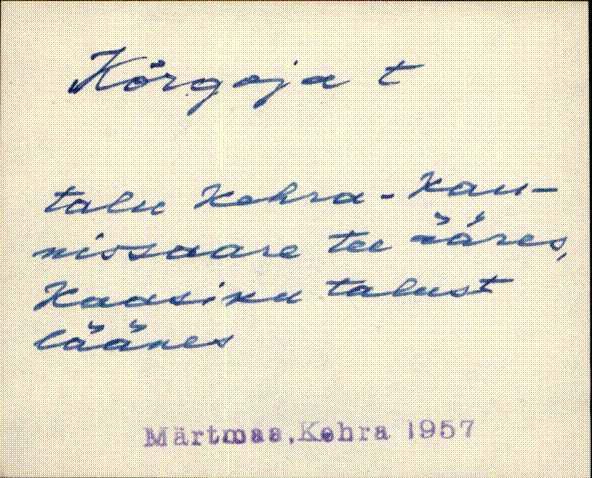 Kõrgoja t
talu Kehra-Kau-
nissaare tee ääres,
Kaasiku talust
läänes
Märtmaa, Kehra 1957